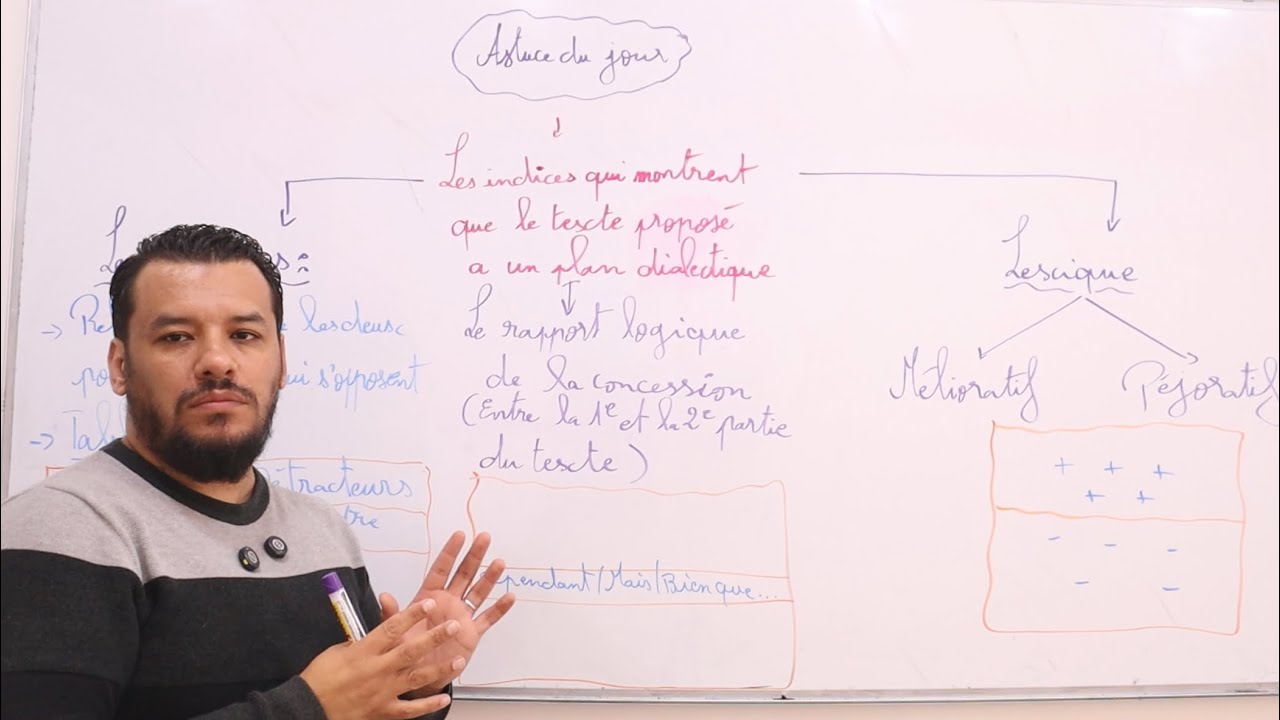 Astuce du jour
Les indices qui montrent
que le texte proposé
a un plan dialectique
les deux
qui s'opposent
Détracteurs
Le rapport logique
de la concession
(Entre la 1e et la 2e partie
du texte)
Cependant/Mais/Bien que...
Lexique
Mélioratif
Péjoratif
+ + +
+ +
- - -
- -